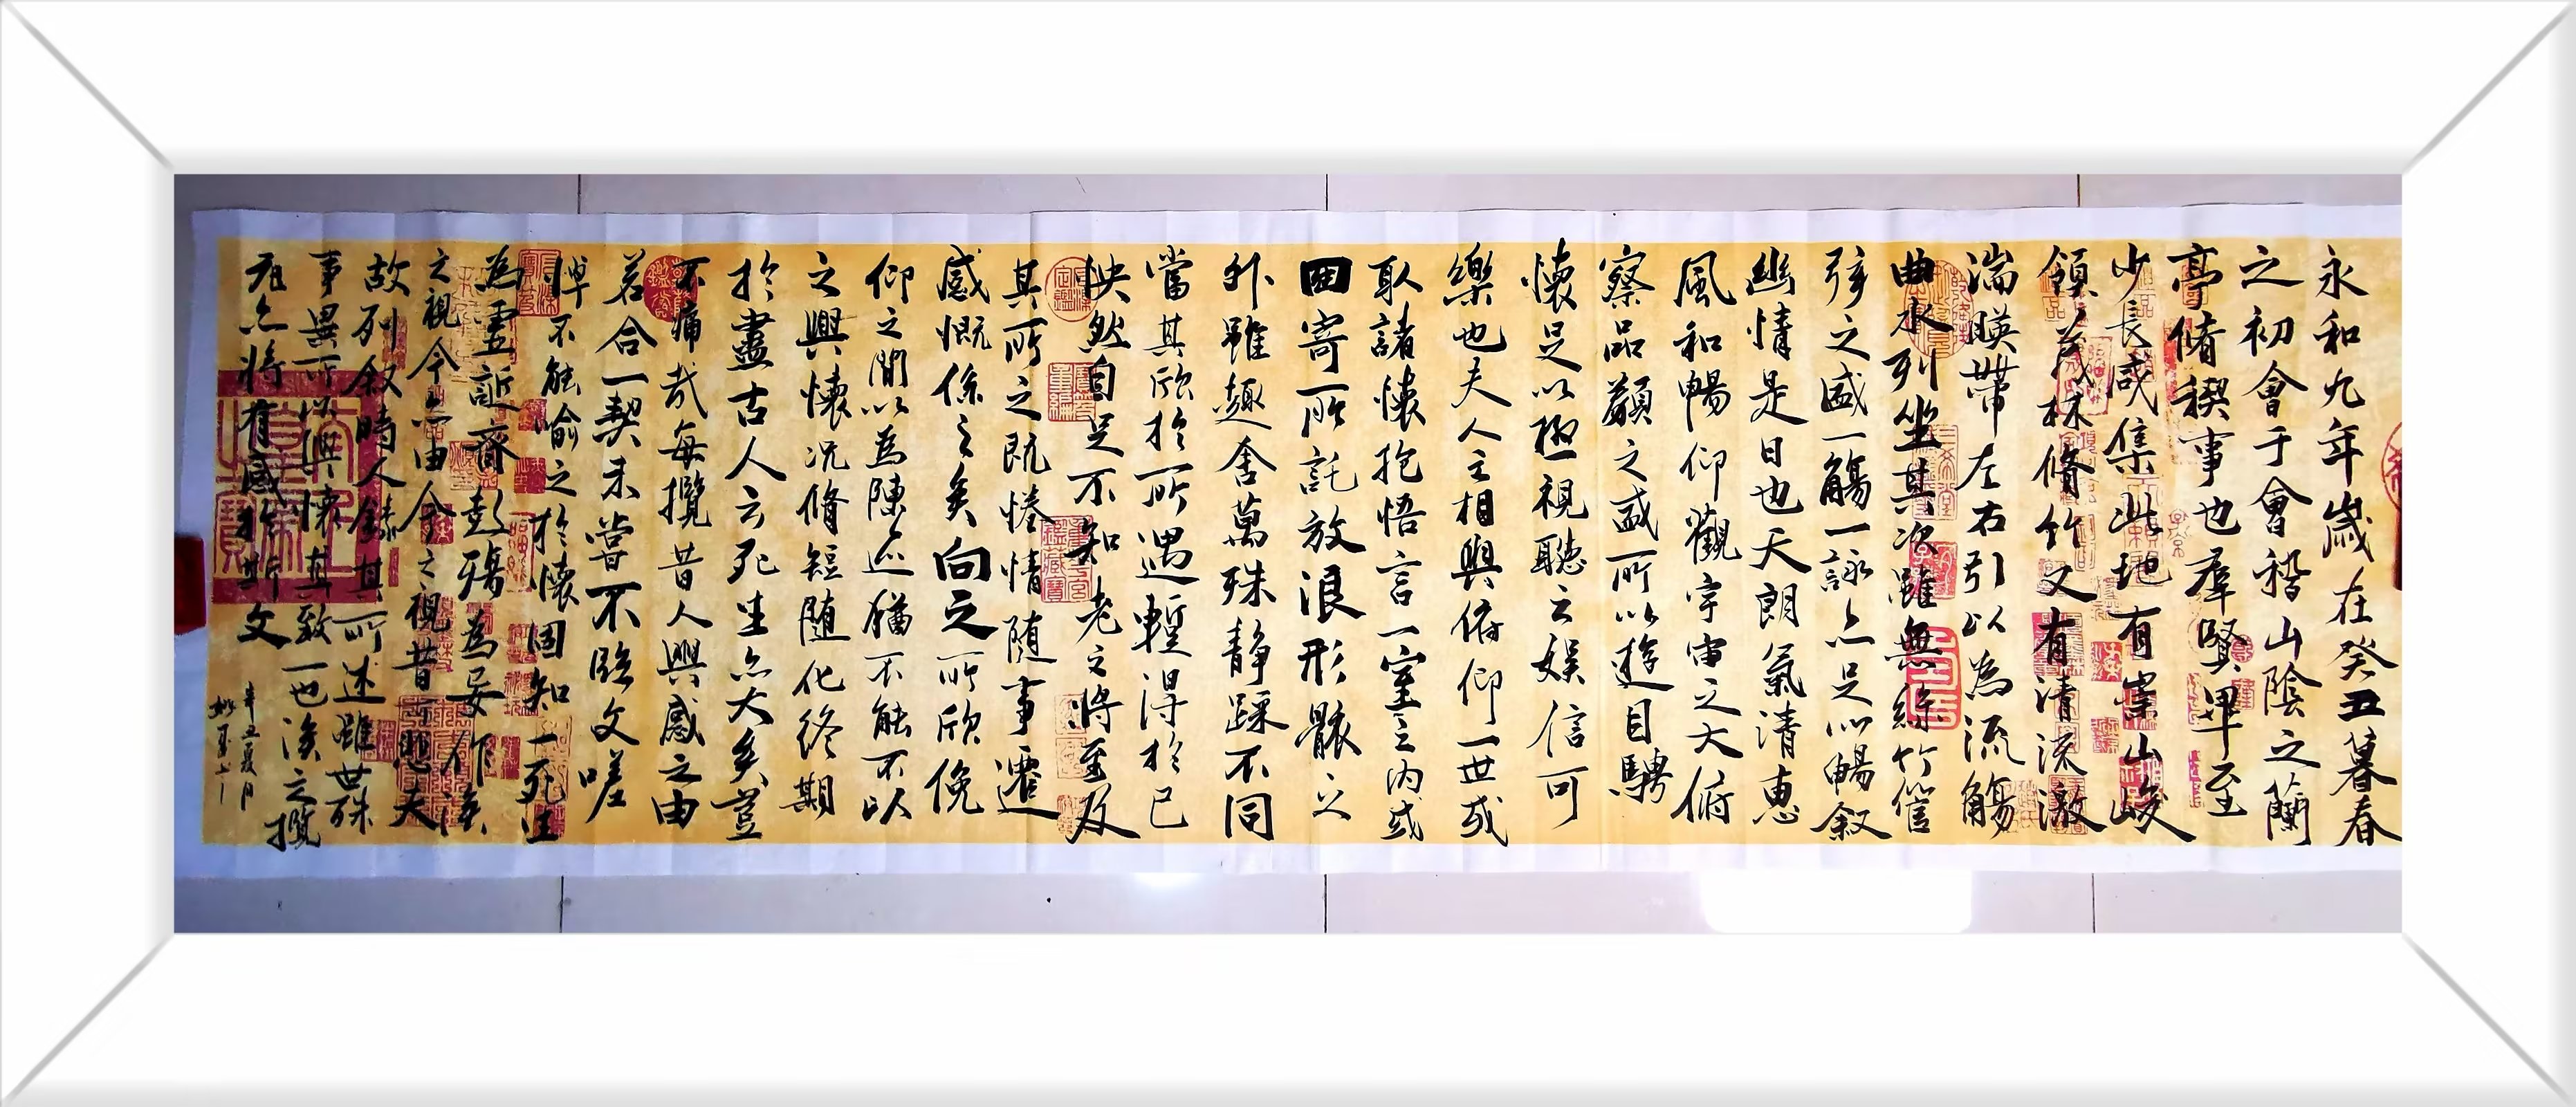 永和九年歲在癸丑暮春
之初會于會稽山陰之蘭
亭脩稧事也羣賢畢至
少長咸集此地有崇山峻
領茂林脩竹又有清流激
湍暎帶左右引以為流觴
曲水列坐其次雖無絲竹管
弦之盛一觴一詠亦足以暢敘
幽情是日也天朗氣清惠
風和暢仰觀宇宙之大俯
察品類之盛所以遊目騁
懷足以極視聽之娛信可
樂也夫人之相與俯仰一世或
取諸懷抱悟言一室之內或
因寄所託放浪形骸之
外雖趣舍萬殊靜躁不同
當其欣於所遇暫得於己
怏然自足不知老之將至及
其所之既惓情隨事遷
感慨係之矣向之所欣俛
仰之閒以為陳迹猶不能不以
之興懷況脩短隨化終期
於盡古人云死生亦大矣豈
不痛哉每攬昔人興感之由
若合一契未嘗不臨文嗟
悼不能喻之於懷固知一死生
為虛誕齊彭殤為妄作後
之視今亦由今之視昔 悲夫
故列敘時人錄其所述雖世殊
事異所以興懷其致一也後之攬
者亦將有感於斯文
辛丑夏月